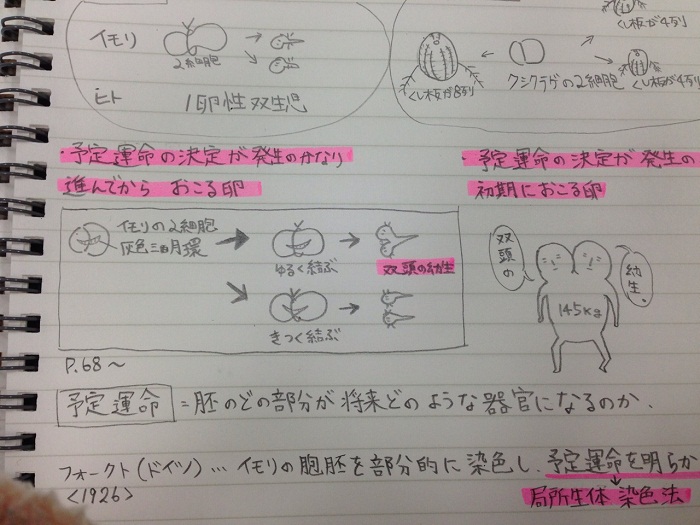 イモリ
2細胞
ヒト 1卵性双生児
くし板が4列
くし板が8列
クシクラゲの2細胞
くし板が4列
・予定運命の決定が発生のかなり
進んでから おこる卵
・予定運命の決定が発生の
初期におこる卵
イモリの2細胞
灰色三日月環
ゆるく結ぶ
双頭の幼生
きつく結ぶ
双頭の
幼生。
145kg
P.68〜
予定運命 = 胚のどの部分が将来どのような器官になるのか.
フォークト(ドイツ)… イモリの胞胚を部分的に染色し、予定運命を明らか
<1926>
局所生体染色法